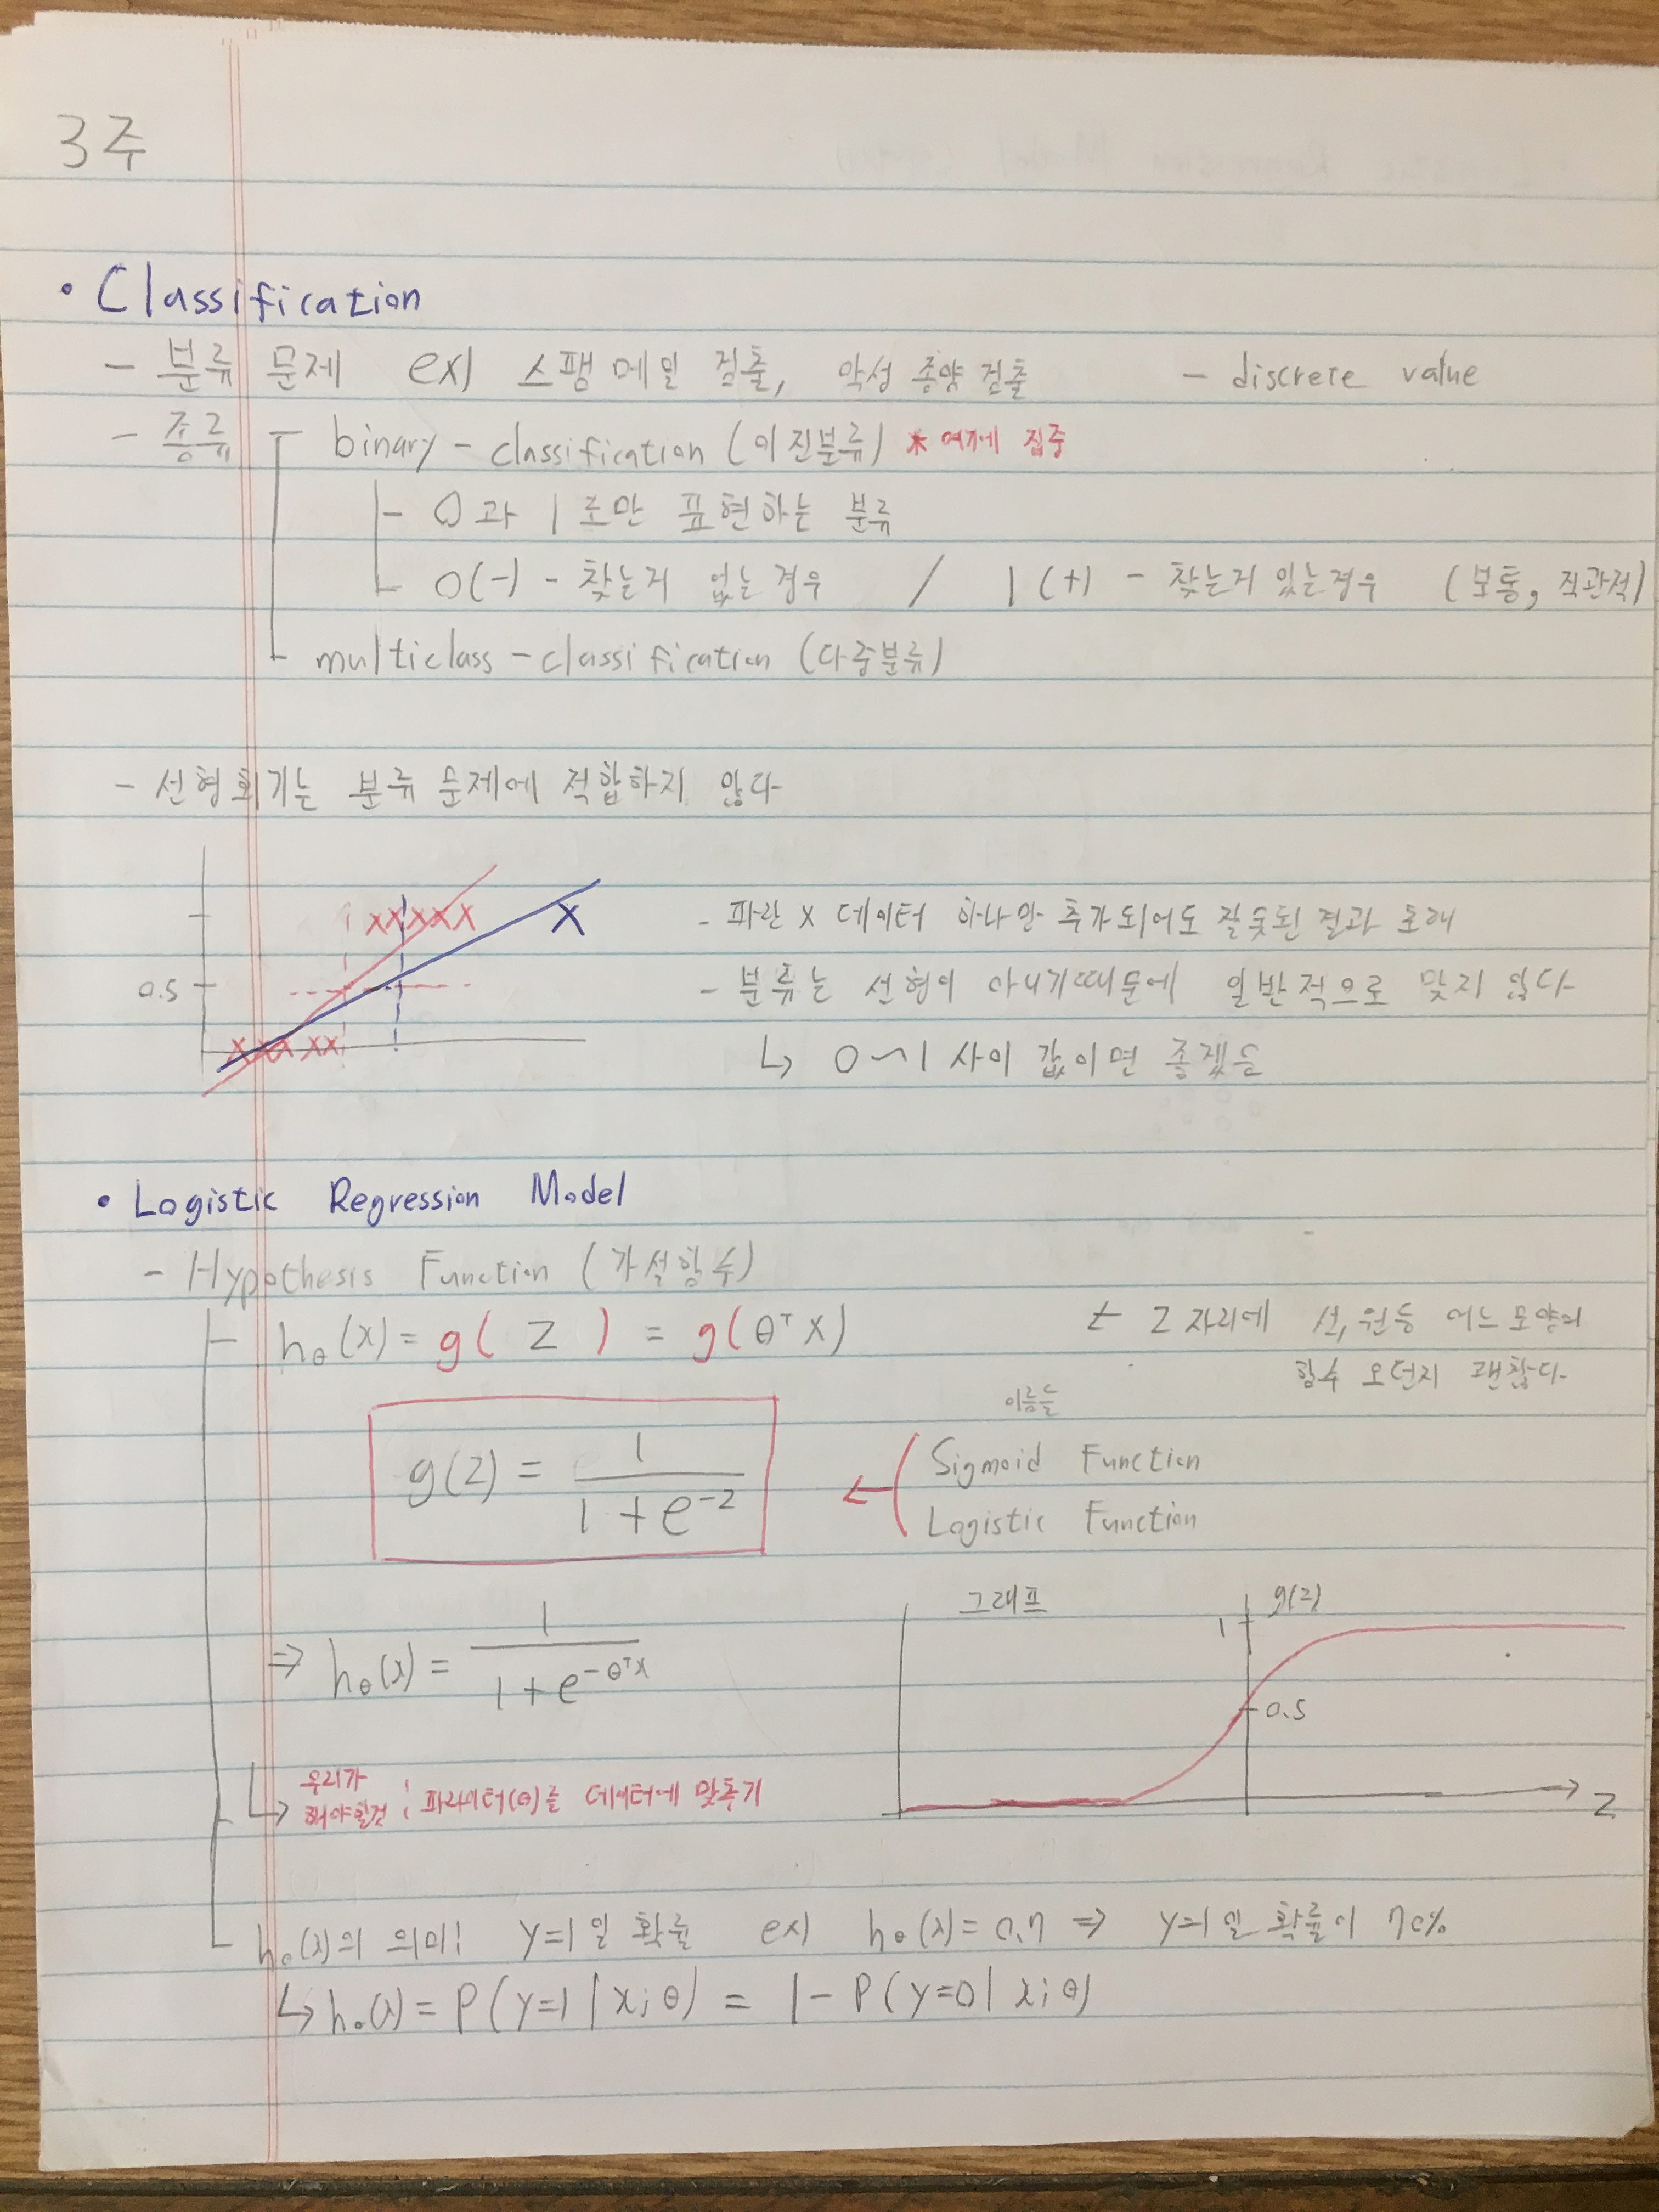 3주
• Classification
- 분류 문제 ex) 스팸 메일 검출, 악성 종양 검출 - discrete value
- 종류 binary - classification (이진분류) * 여기에 집중
- 0과 1로만 표현하는 분류
0(-) - 찾는거 없는경우 / 1(+) - 찾는거 있는경우 (보통, 직관적)
multiclass - classification (다중분류)
- 선형회기는 분류 문제에 적합하지 않다
- 파란 x 데이터 하나만 추가되어도 잘못된 결과 초래
0.5
- 분류는 선형이 아니기때문에 일반적으로 맞지 않다
↳ 0~1 사이 값이면 좋겠음
• Logistic Regression Model
- Hypothesis Function (가설함수)
hθ(x) = g( z ) = g(θᵀx) ← z 자리에 선, 원등 어느 모양의
함수 오던지 괜찮다.
이름들
g(z) = 1 / (1 + e^-z) ← Sigmoid Function
Logistic Function
그래프 g(z)
1
⇒ hθ(x) = 1 / (1 + e^-θᵀx)
0.5
우리가
해야할것 : 파라미터(θ)를 데이터에 맞추기
z
hθ(x)의 의미: y=1일 확률 ex) hθ(x) = 0.7 ⇒ y=1일 확률이 70%
↳ hθ(x) = P(y=1 | x; θ) = 1 - P(y=0 | x; θ)